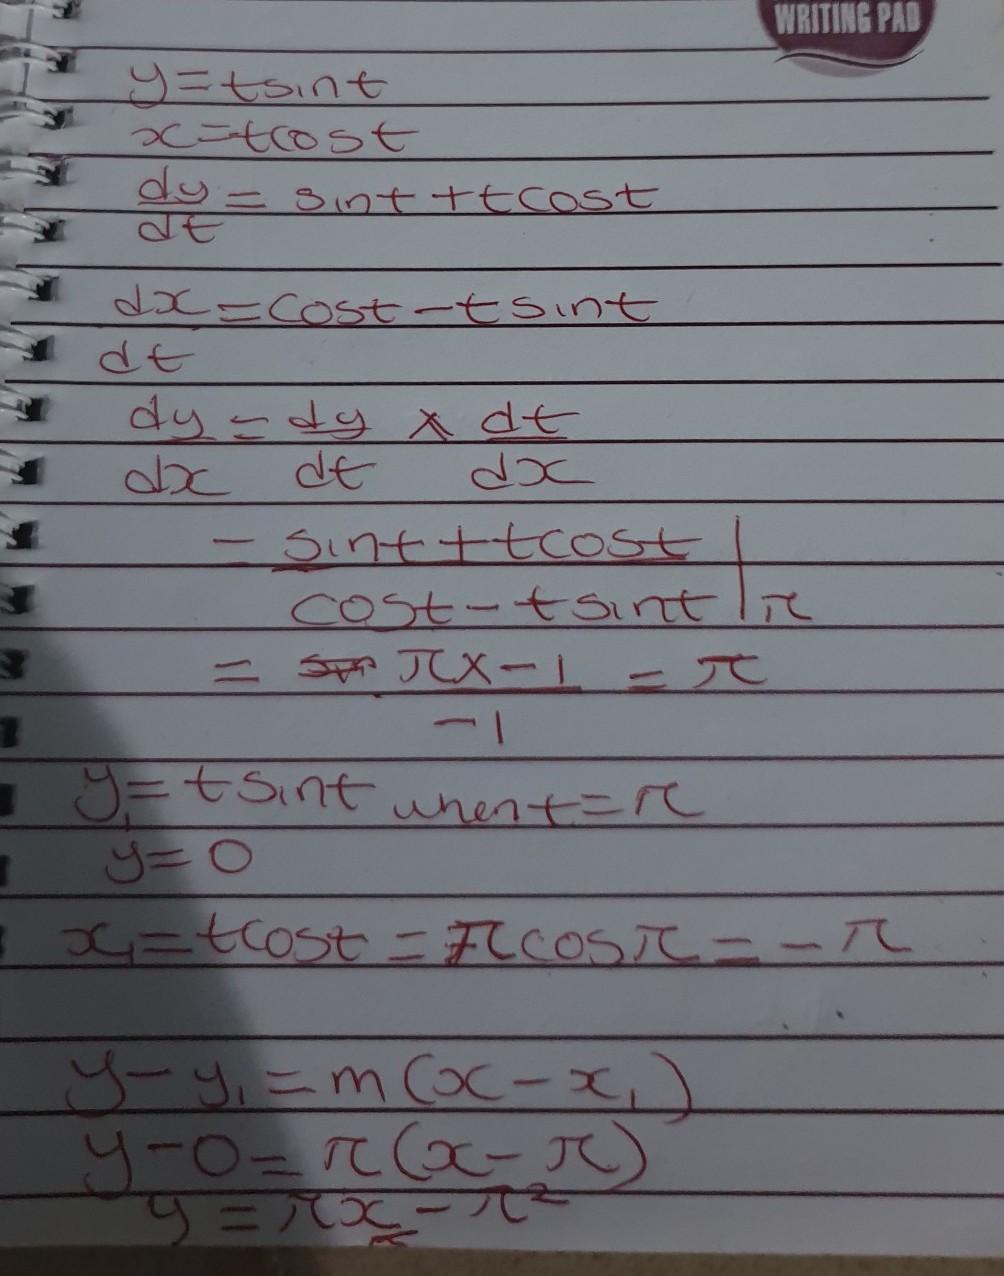 WRITING PAD
y=tsint
x=tcost
dy = sint + tcost
dt
dx = cost - tsint
dt
dy = dy × dt
dx dt dx
= sint + tcost |
cost - tsint | π
= π x -1 = π
-1
y₁ = tsint when t = π
y = 0
x₁ = tcost = πcosπ = -π
y - y₁ = m(x - x₁)
y - 0 = π(x - π)
y = πx - π²